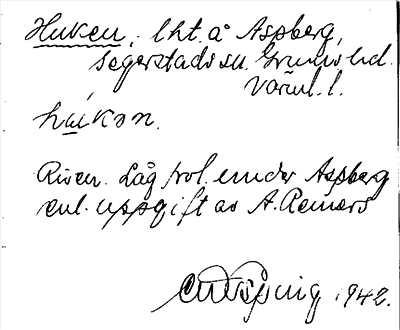 Huken, lht. å Aspberg,
Segerstads sn. Grums hd.
Värml. l.
hu̱kən.
Riven. Låg trol. under Aspberg
enl. uppgift av A. Reiners
1942.